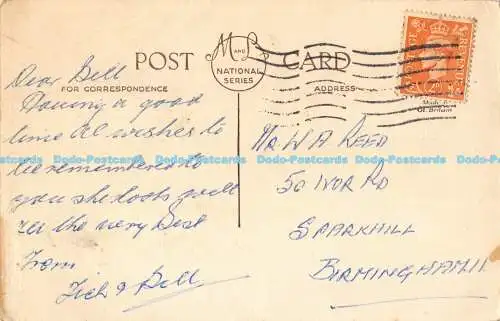 POST CARD
M AND L
NATIONAL
SERIES
FOR CORRESPONDENCE
ADDRESS
POSTAGE REVENUE
Made in
Gt. Britain
Dear Bill
Having a good
time Al wishes to
be remembered to
you she looks well
all the very best
From
& Bill
MR W A REED
50 IVOR RD
SPARKHILL
BIRMINGHAM 11
Dodo-Postcards Dodo-Postcards Dodo-Postcards Dodo-Postcards Dodo-Postcards